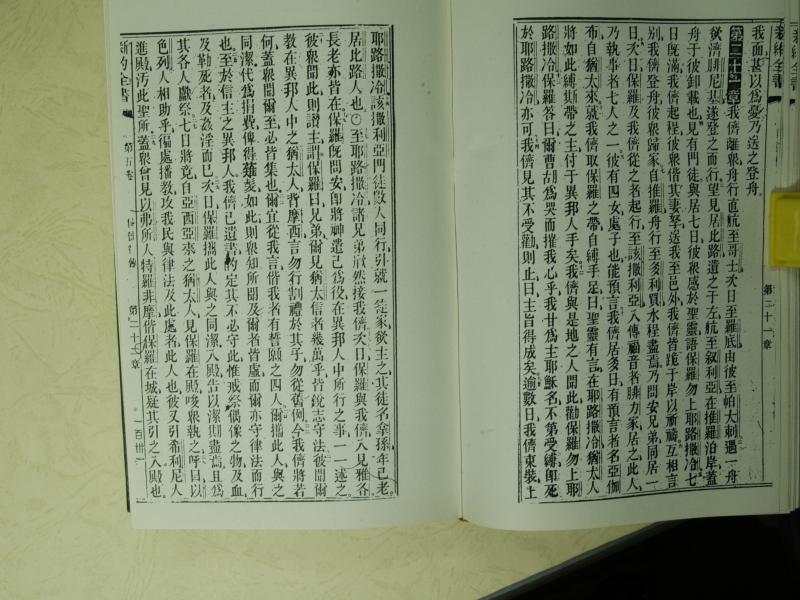 新約全書
第二十一章
我面甚以爲憂乃送之登舟
第二十一章我儕離衆舟行直航至哥士次日至羅底由彼至帕大喇遇一舟
欲濟腓尼基遂登之而行望見居比路遺之于左航至叙利亞在推羅泊岸蓋
舟于彼卸載也見有門徒與居七日彼衆感於聖靈語保羅勿上耶路撒冷七
日旣滿我儕起程彼衆偕其妻孥送我至邑外我儕皆跪于岸以祈禱互相言
別我儕登舟彼衆歸家自推羅舟行至多利買水程盡焉乃問安兄弟同居一
日次日保羅及我儕從之者起行至該撒利亞入傳福音者腓力家居之此人
乃執事者七人之一彼有四女處子也能預言我儕居多日有預言者名亞伽
布自猶太來就我儕取保羅之帶自縛手足曰聖靈有言在耶路撒冷猶太人
將如此縛斯帶之主付于異邦人手矣我儕與是地之人聞此勸保羅勿上耶
路撒冷保羅答曰爾曹胡爲哭而摧我心乎我甘爲主耶穌名不第受縛卽死
於耶路撒冷亦可我儕見其不受勸則止曰主旨得成矣逾數日我儕束裝上
耶路撒冷該撒利亞門徒數人同行引就一徒家欲主之其徒名拿孫年已老
居比路人也○至耶路撒冷諸兄弟欣然接我儕次日保羅與我儕入見雅各
長老亦皆在保羅旣問安卽將神遣己爲役在異邦人中所行之事一一述之
彼衆聞此則讚主謂保羅曰兄弟爾見猶太信者幾萬乎皆銳志守法彼聞爾
教在異邦人中之猶太人背摩西言勿行割禮於其子勿從舊例今我儕將若
何蓋衆聞爾至必皆集也爾宜從我言偕我者有誓願之四人爾攜此人與之
同潔代爲捐費俾得薙髮如此則衆知所聞及爾者皆虛而爾亦守律法而行
也至於信主之異邦人我儕已遺書酌定其不必守此惟戒祭偶像之物及血
及勒死者及姦淫而已次日保羅攜此人與之同潔入殿告以潔期盡焉且爲
其各人獻祭七日將竟自亞西亞來之猶太人見保羅在殿唆衆執之呼曰以
色列人相助乎徧處播教攻我民與律法及此處者此人也彼又引希利尼人
進殿汚此聖所蓋衆曾見以弗所人特羅非摩偕保羅在城疑其引之入殿也
新約全書 第五卷 使徒行傳 第二十一章 一百卅三